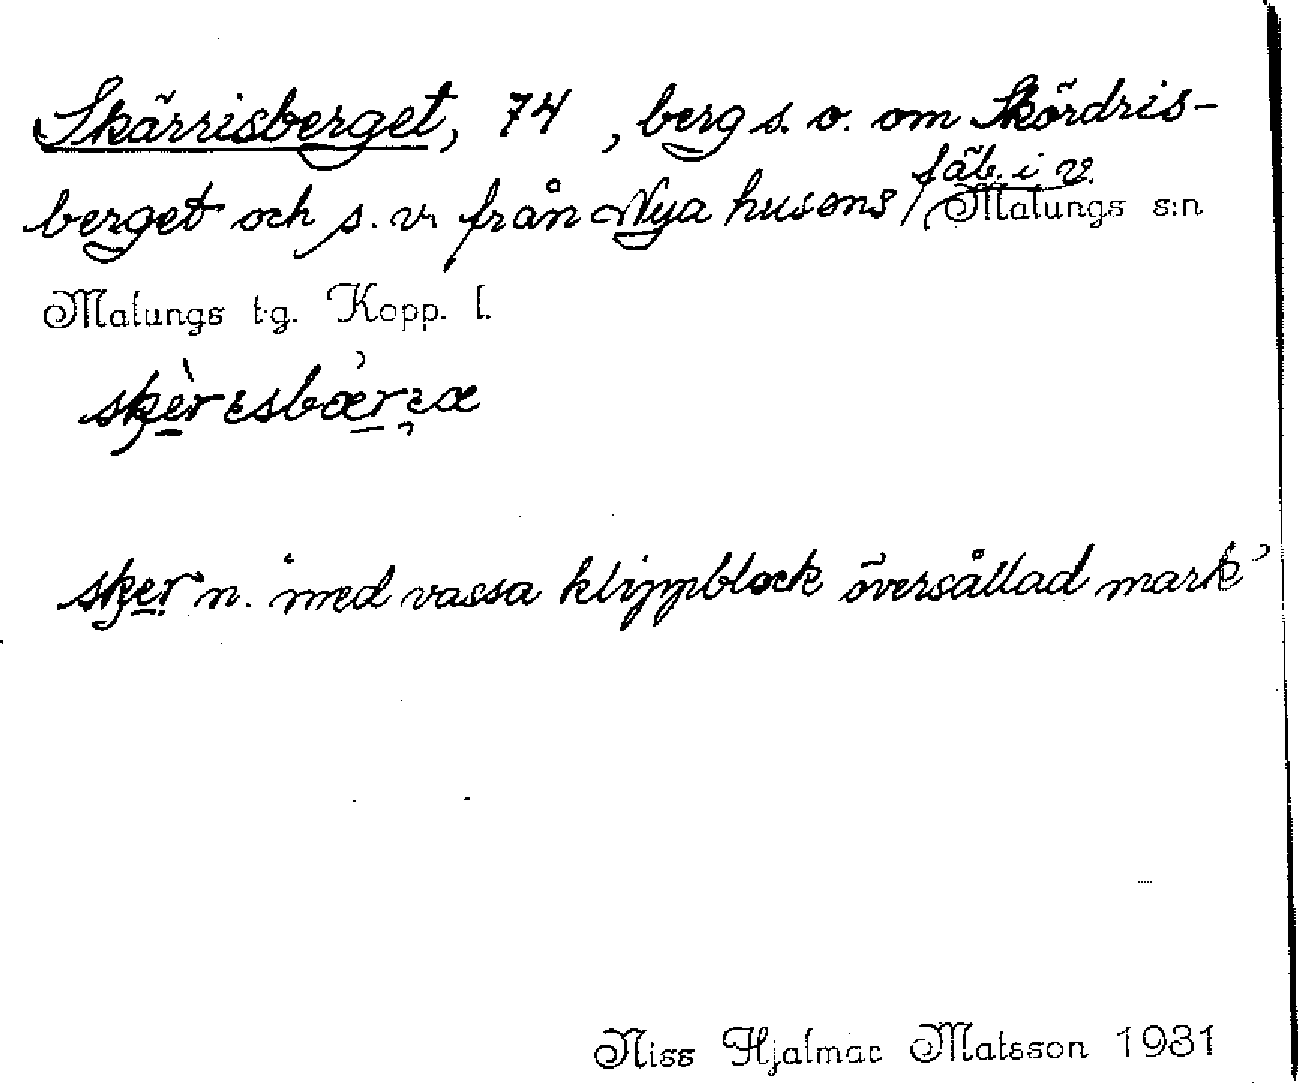 Skärrisberget, 74 , berg s. o. om Skördris-
berget och s. v. från Nya husens / fäb. i v. Malungs s:n
Malungs tg. Kopp. l.
n. 'med vassa klippblock översållad mark'
Niss Hjalmar Matsson 1931